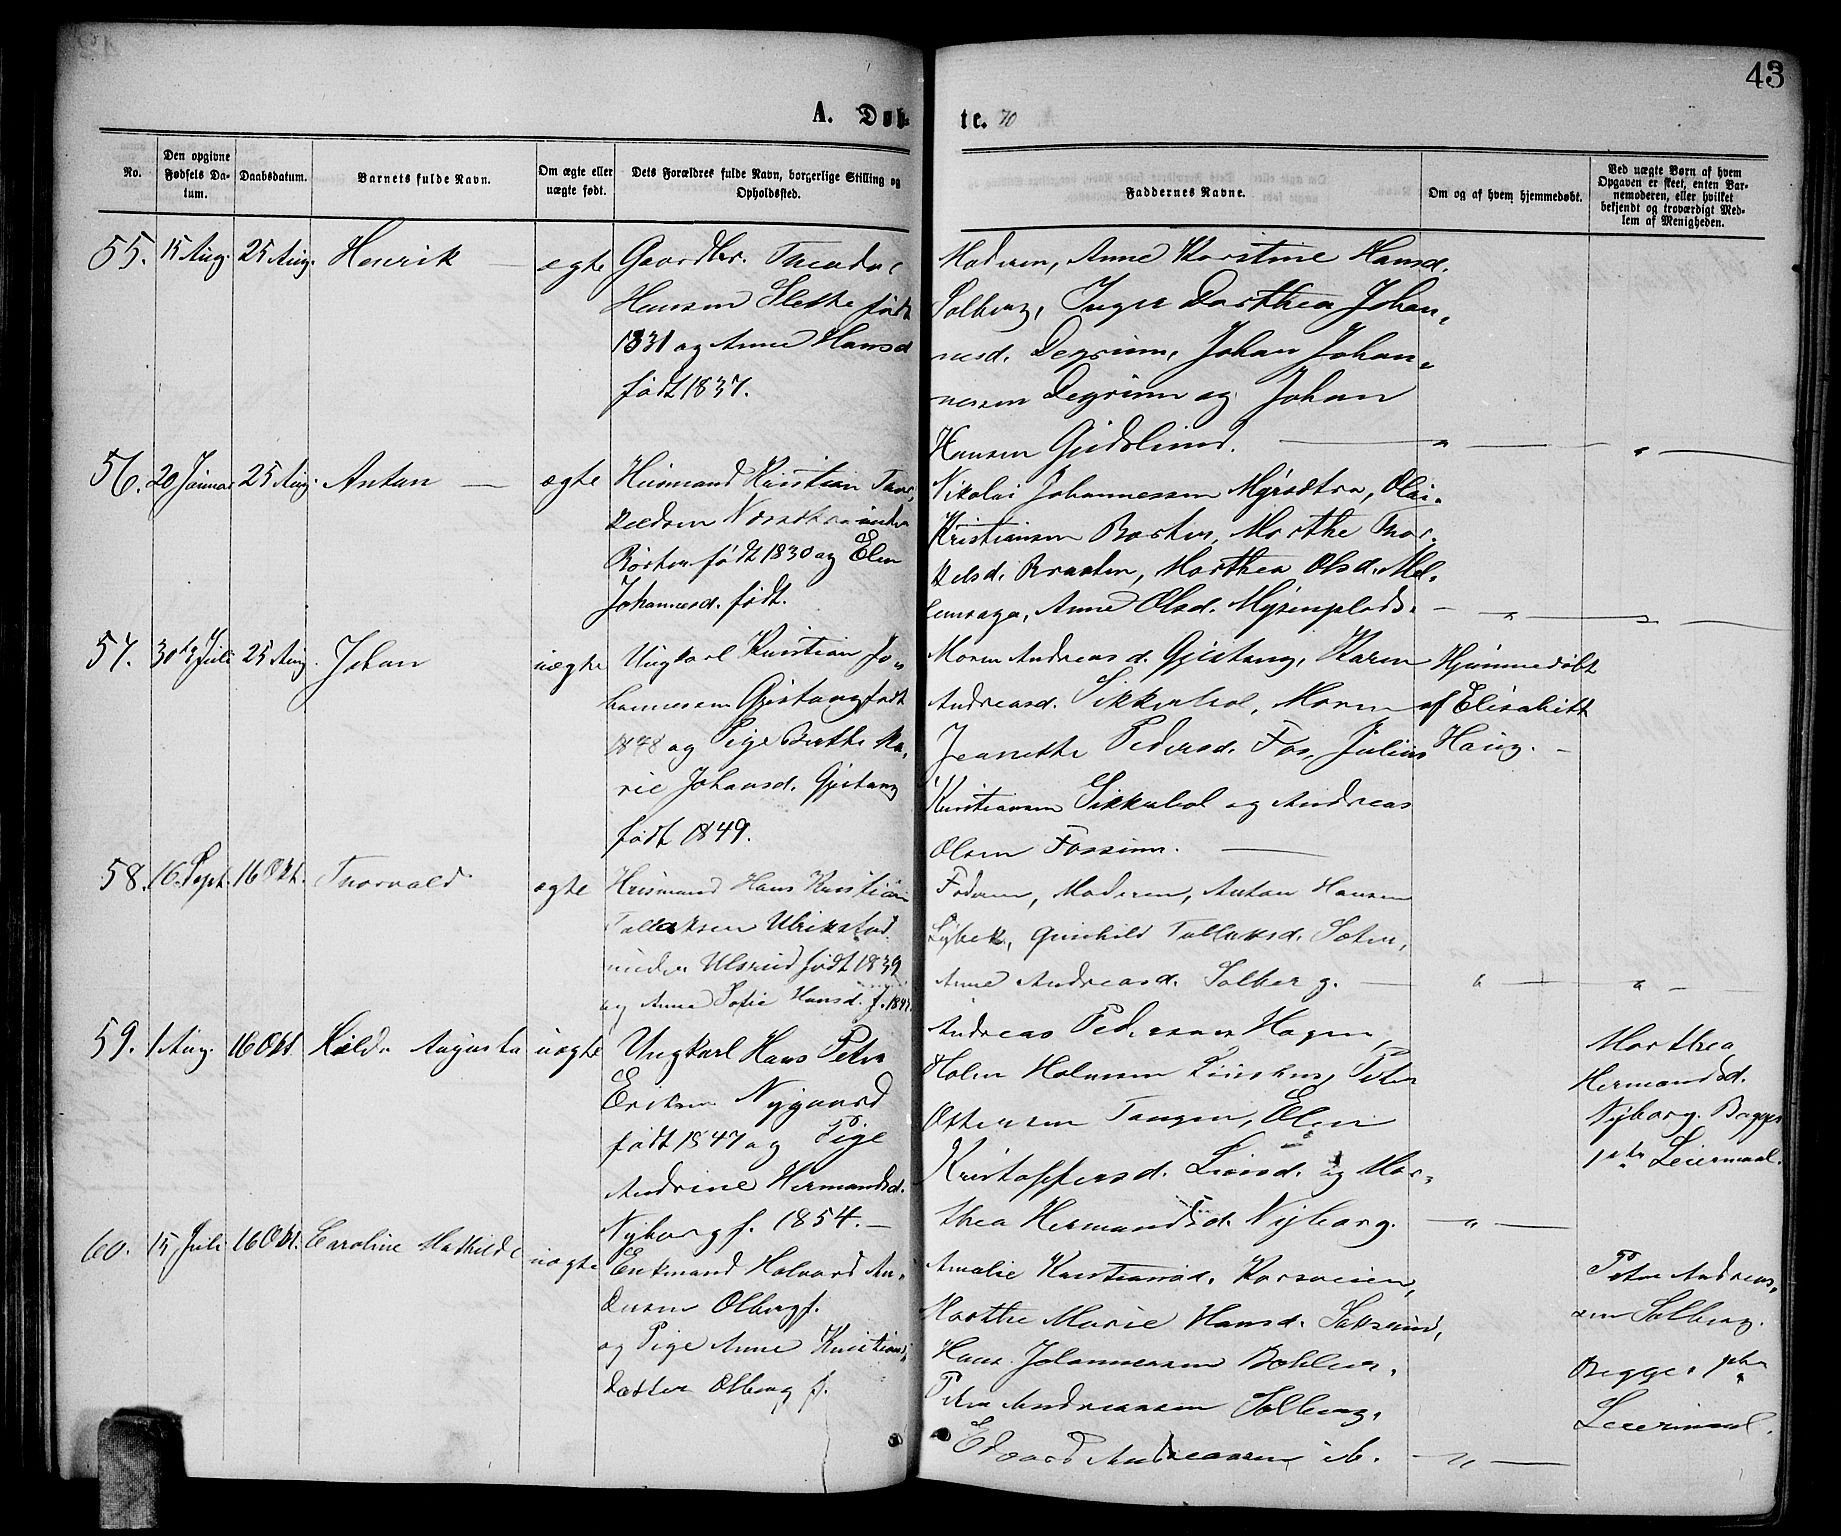 43
A. Døbte. 70
No.
Den opgivne Fødsels Datum.
Daabsdatum.
Barnets fulde Navn.
Om ægte eller uægte født.
Dets Forældres fulde Navn, borgerlige Stilling og Opholdssted.
Faddernes Navne.
Om og af hvem hjemmedøbt.
Ved uægte Børn af hvem Opgaven er skeet, enten Barnemoderen, eller hvilket bekjendt og troværdigt Medlem af Menigheden.
55. 15 Aug. 25 Aug. Henrik — ægte
Gaardbr.
Hansen Slette født
1831 og Anne Hansd
født 1837.
Moderen, Anne Karstine Hansd.
Solberg, Inger Dorthea Johan-
nesd. Degrum, Johan Johan-
nessen Degrum og Johan
Hansen Gudslund. — " — "
56. 20 Januar 25 Aug. Anton — ægte
Husmand Kristian Tor-
keldsen under
født 1830 og Elen
Johannesd. født.
Nikolai Johannessen Myrsætra,
Kristiansen Marthe Tor-
kelsd. Braaten, Marthea Olsd.
Anne Olsd. — " — "
57. 30te Juli 25 Aug. Johan uægte
Ungkarl Kristian Jo-
hannessen Gjistang født
1848 og Pige Berthe Ma-
rie Johansd. Gjistang
født 1849.
Maren Andreasd. Gjistang, Karen
Andreasd. Sikkerbøl, Maren
Jeanette Pedersd. Fos, Julius
Kristiansen Sikkerbøl og Andreas
Olsen Fossum. —
Hjemmedøbt
af Elisabeth
Haug. —
58. 16 Sept. 16 Okt. Thorvald ægte
Husmand Hans Kristian
Tollaksen
under Ulsrud født 1839
og Anne Sofie Hansd. f.
Faderen, Moderen, Anton Hansen
Lybek, Gunhild Tollaksd. Sæter,
Anne Andreasd. Solberg. — " — " —
59. 1 Aug. 16 Okt. Hilda Augusta uægte
Ungkarl Hans Peter
Eriksen Nygaard
født 1847 og Pige
Andrine Hermandsd.
Nyborg f. 1854. —
Andreas Pedersen Hagen,
Peter
Ottersen Tangen, Elen
Kristoffersd. og Mar-
thea Hermandsd. Nyborg. — " —
Marthea
Hermandsd.
Nyborg. Begges
1ste Leiermaal.
60. 15 Juli 16 Okt. Caroline Mathilde uægte
Enkemand Halvard An-
dersen Olberg f.
og Pige Anne Kristians-
datter Olberg f.
Amalie Kristiansd. Korsveien,
Marthe Marie Hansd.
Hans Johannessen Bøhler,
Peter Andreassen Solberg,
Edvard Andreassen ib. — " —
Peter Andreas-
sen Solberg.
Begges
Leiermaal.